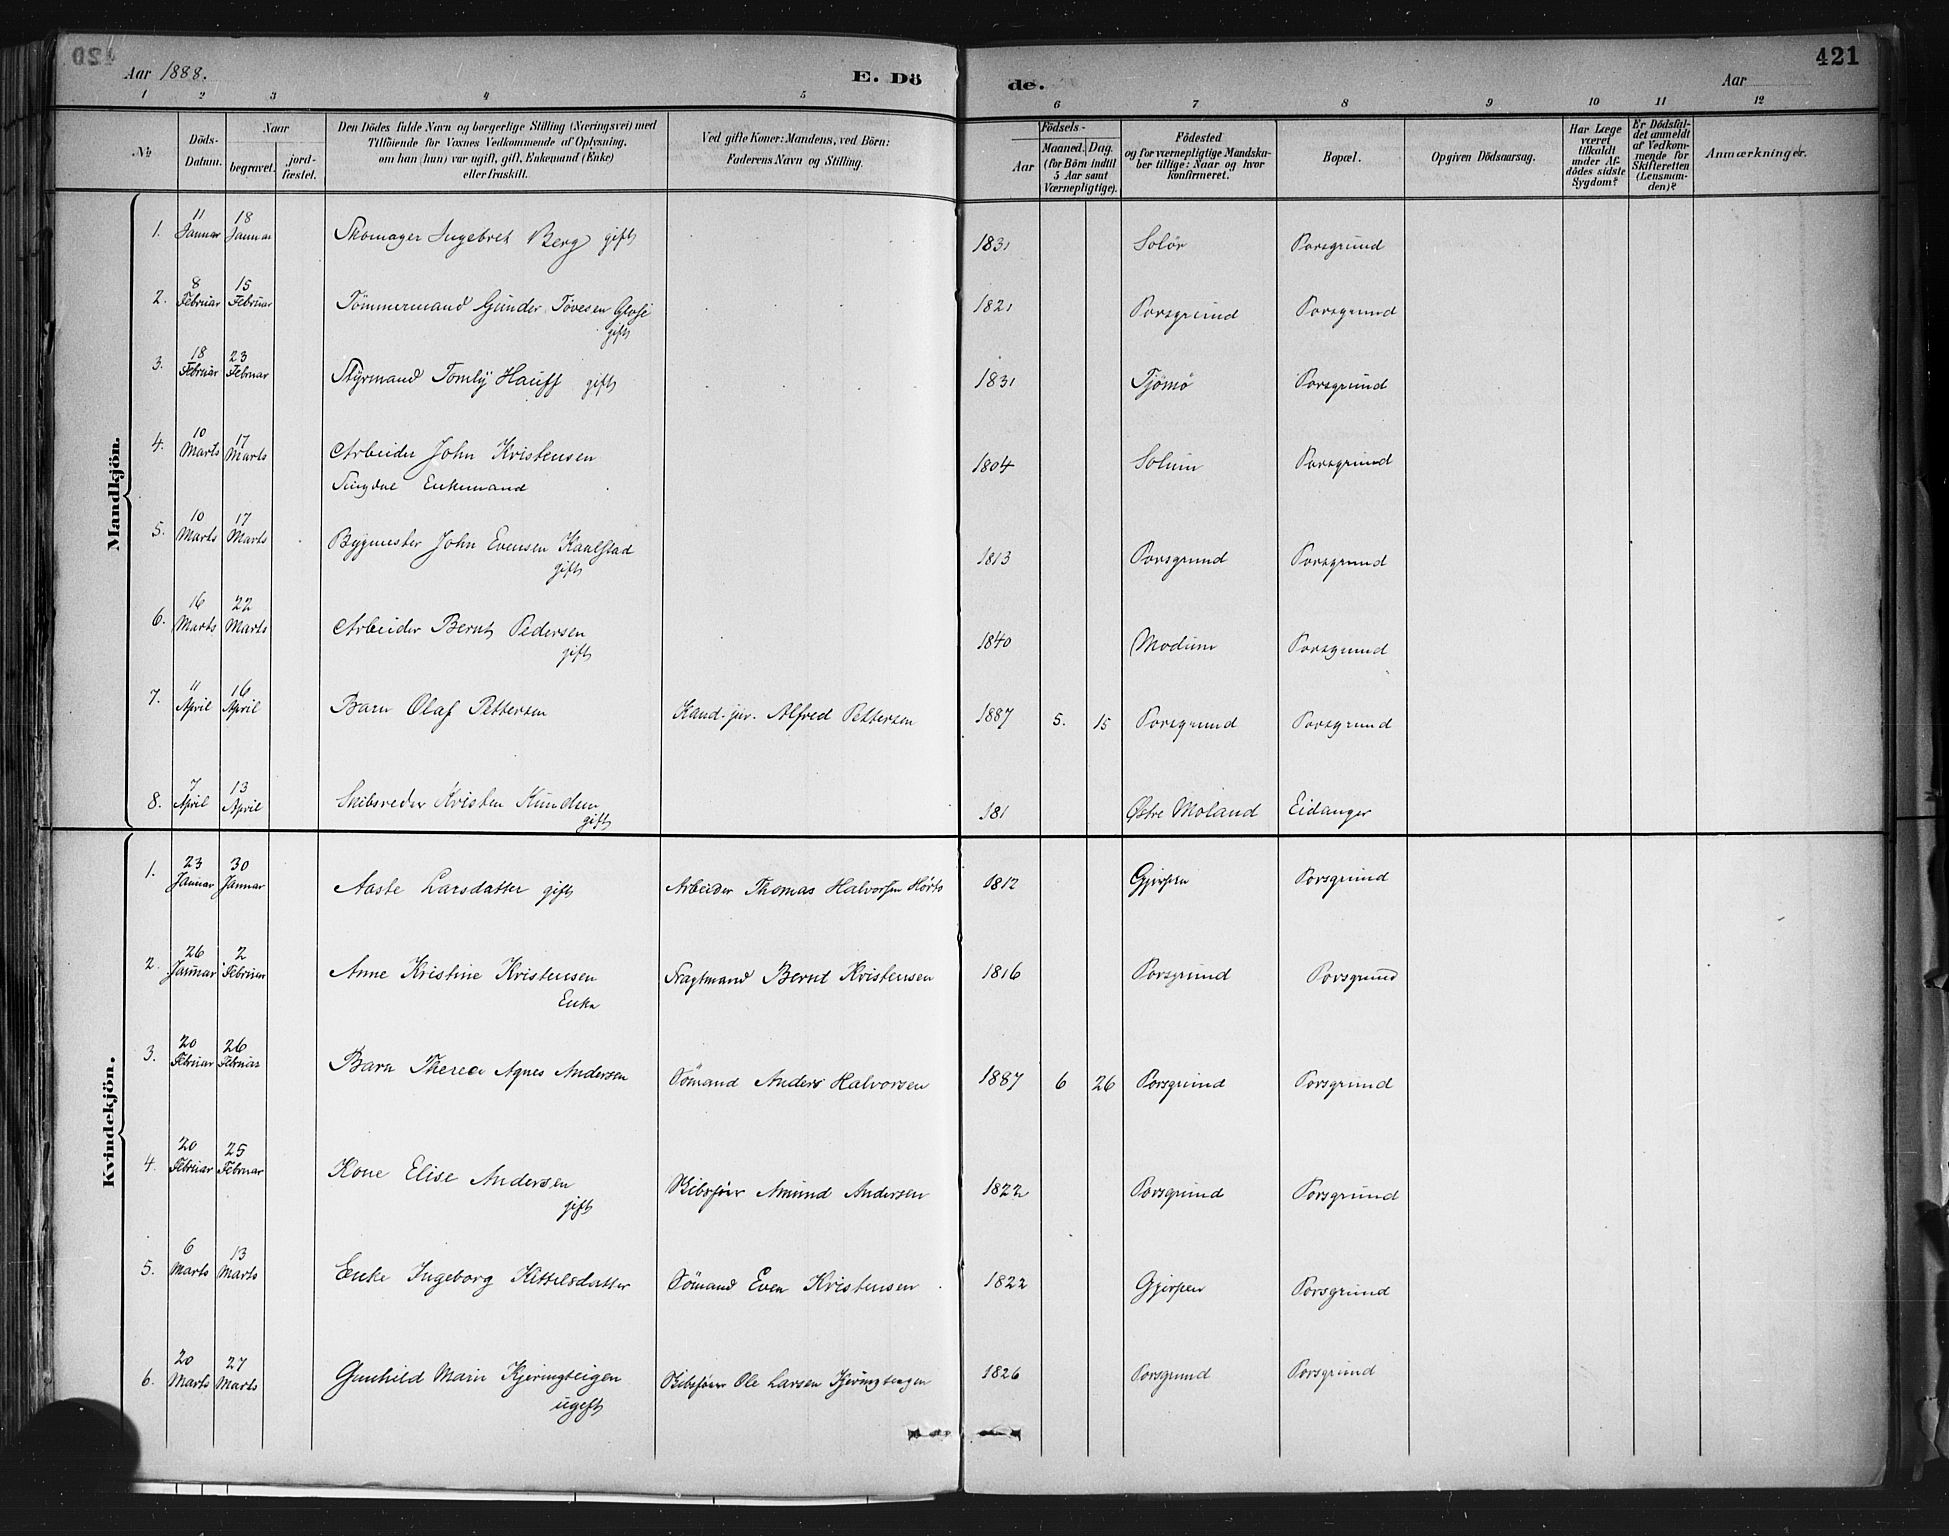 420
Aar 1888.
E. Dö
de.
Aar
421
1 2 3 4 5 6 7 8 9 10 11 12
No.
Döds-
Datum.
Naar
begravet.
jord-
fæstet.
Den Dödes fulde Navn og borgerlige Stilling (Næringsvei) med
Tilföiende for Voxnes Vedkommende af Oplysning,
om han (hun) var ugift, gift, Enkemand (Enke)
eller fraskilt.
Ved gifte Koner: Mandens, ved Börn:
Faderens Navn og Stilling.
Födsels-
Aar
Maaned. Dag.
(for Börn indtil
5 Aar samt
Værnepligtige).
Födested
og for værnepligtige Mandska-
ber tillige: Naar og hvor
konfirmeret.
Bopæl.
Opgiven Dödsaarsag.
Har Læge
været
tilkaldt
under Af-
dödes sidste
Sygdom?
Er Dödsfal-
det anmeldt
af Vedkom-
mende for
Skifteretten
(Lensman-
den)?
Anmærkninger.
Mandkjön.
1. 11 Januar 18 Januar Skomager Ingebret Berg gift 1831 Solör Porsgrund
2. 8 Februar 15 Februar Tömmermand Gunder Tovesen 1821 Porsgrund Porsgrund
gift
3. 18 Februar 23 Februar Styrmand Hauff gift 1831 Tjömö Porsgrund
4. 10 Marts 17 Marts Arbeider John Kristensen 1804 Solum Porsgrund
Enkemand
5. 10 Marts 17 Marts Bygmester John Evensen Kaalstad 1813 Porsgrund Porsgrund
gift
6. 16 Marts 22 Marts Arbeider Bernt Pedersen 1840 Modum Porsgrund
gift
7. 11 April 16 April Barn Olaf Pettersen Kand. jur. Alfred Pettersen 1887 5. 15 Porsgrund Porsgrund
8. 7 April 13 April Skibsreder Kristen Knudsen 181 Østre Moland Eidanger
gift
Kvindekjön.
1. 23 Januar 30 Januar Aaste Larsdatter gift Arbeider Thomas Halvorsen 1812 Gjerpen Porsgrund
2. 26 Januar 2 Februar Anne Kristine Kristensen Fragtmand Bernt Kristensen 1816 Porsgrund Porsgrund
Enke
3. 20 Februar 26 Februar Barn Agnes Andersen Sömand Anders Halvorsen 1887 6 26 Porsgrund Porsgrund
4. 20 Februar 25 Februar Kone Elise Andersen Skibsförer Amund Andersen 1822 Porsgrund Porsgrund
gift
5. 6 Marts 13 Marts Enke Ingeborg Kittelsdatter Sömand Even Kristensen 1822 Gjerpen Porsgrund
6. 20 Marts 27 Marts Gunhild Marie Kjeringteigen Skibsförer Ole Larsen Kjeringteigen 1826 Porsgrund Porsgrund
ugift